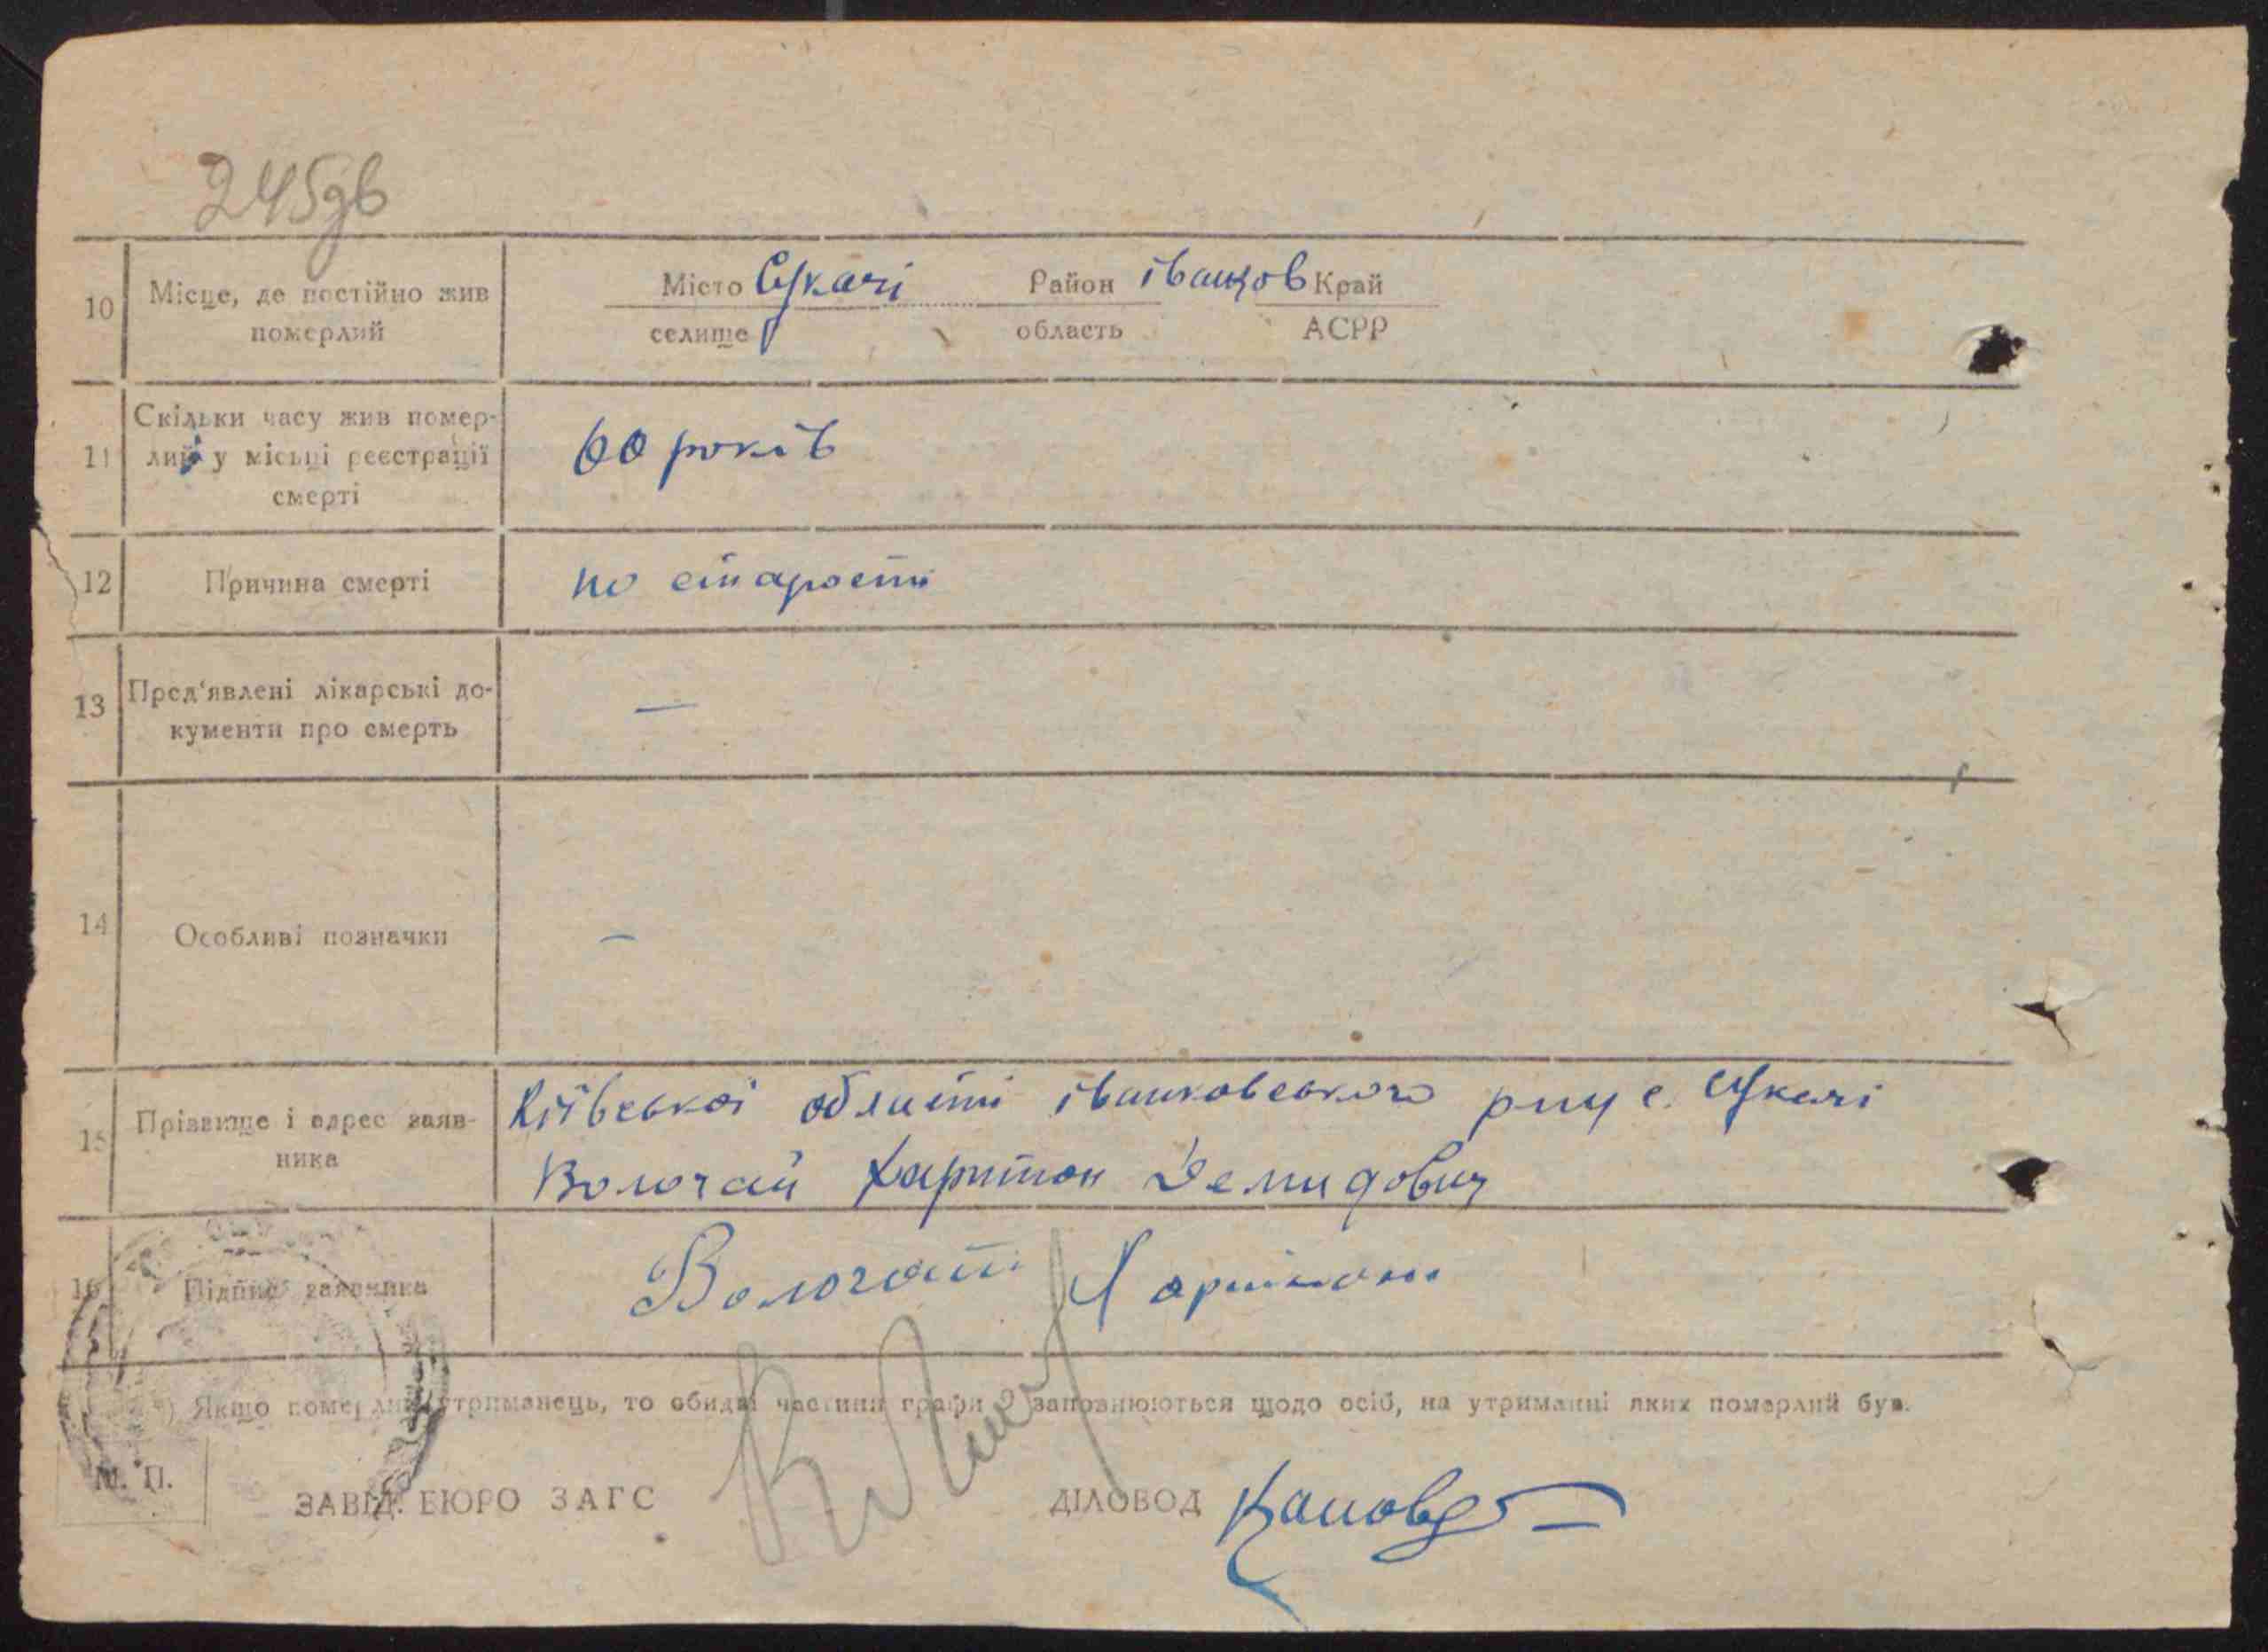 245зв
10 Місце, де постійно жив померлий
Місто Сукачі Район іванков Край
селище область АСРР
11 Скільки часу жив померлий у місьці реєстрації смерті
60 років
12 Причина смерті
по старости
13 Пред'явлені лікарські документи про смерть
—
14 Особливі позначки
—
15 Прізвище і адрес заявника
Київської області іванковського рну с. Сукачі
Волочай Харитон Демидович
16 Підпис заявника
Волочай Харитон
) Якщо померлий утриманець, то обидві частини графи 9 заповнюються щодо осіб, на утриманні яких померлий був.
М. П.
ЗАВІД. БЮРО ЗАГС
ДІЛОВОД